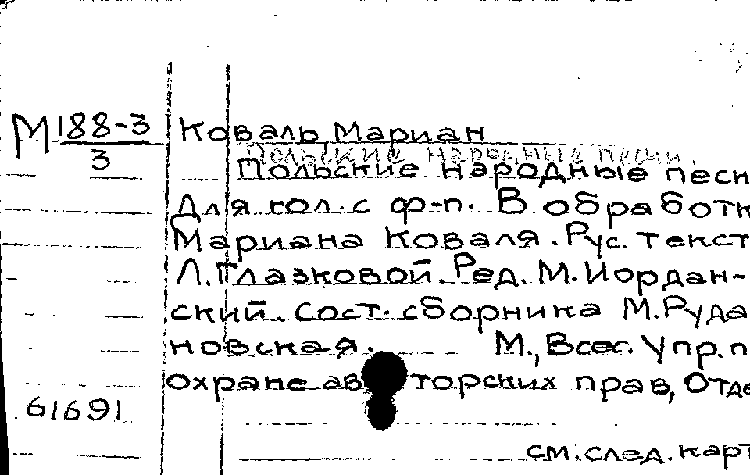 М 188-3/3
Коваль Мариан
Польские народные песни.
Польские народные песн
Для гол. с ф-п. В обработк
Мариана Коваля. Рус. текст
Л. Глазковой. Ред. М. Иордан-
ский. Сост. сборника М. Руда
новская. М., Всес. Упр. п
охране авторских прав, Отде
61691
см. след. карт